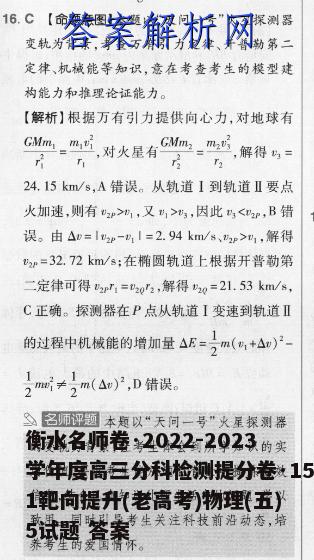 16. C 【命题
变轨为
定律、机械能等知识，意在考查考生的模型建
构能力和推理论证能力。
答案解析网
【解析】根据万有引力提供向心力，对地球有
GMm₁/r₁² = m₁v₁²/r₁，对火星有 GMm₂/r₂² = m₂v₃²/r₂，解得 v₃ =
24.15 km/s，A 错误。从轨道Ⅰ到轨道Ⅱ要点
火加速，则有 v₂P>v₁，又 v₁>v₃，因此 v₃<v₂P，B 错
误。由 Δv=|v₂P-v₁|=2.94 km/s、v₂P>v₁，解得
v₂P=32.72 km/s；在椭圆轨道上根据开普勒第
二定律可得 v₂Pr₁=v₂Qr₂，解得 v₂Q=21.53 km/s，
C 正确。探测器在 P 点从轨道Ⅰ变速到轨道Ⅱ
的过程中机械能的增加量 ΔE=1/2 m(v₁+Δv)²-
1/2 mv₁²≠1/2 m(Δv)²，D 错误。
名师评题 本题以“天问一号”火星探测器
衡水名师卷·2022-2023
学年度高三分科检测提分卷 15
1靶向提升(老高考)物理(五)
5试题 答案
养考生的爱国情怀。